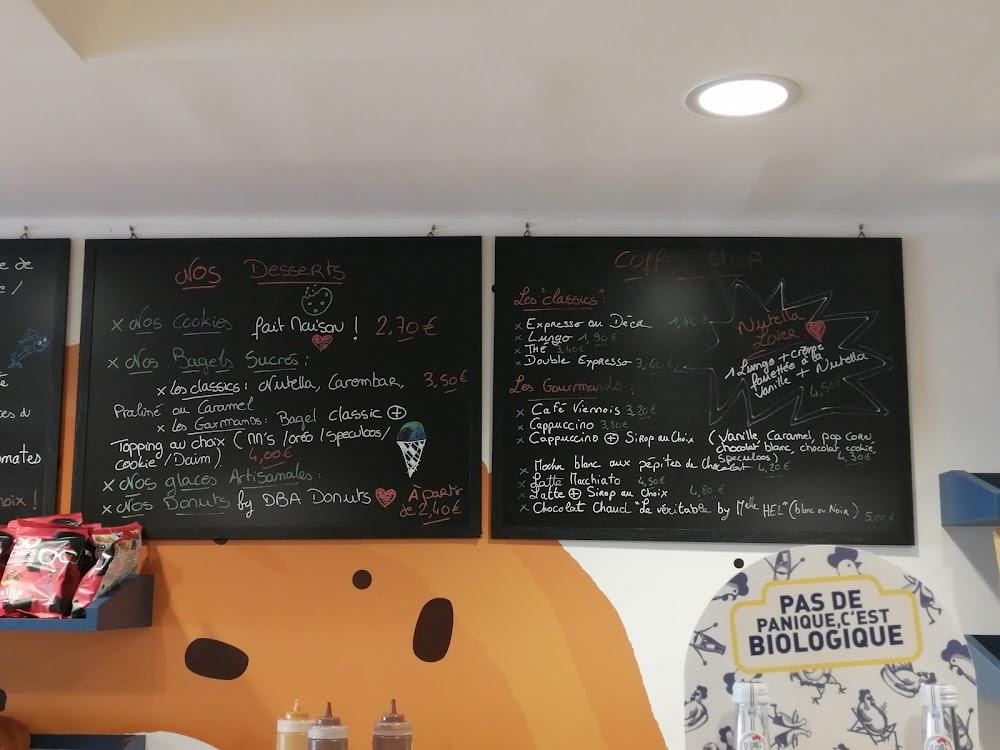 e de
ce /
te
ces du
omates
noix !
Nos Desserts
x Nos Cookies fait Maison ! 2.70€
x Nos Bagels Sucrés :
x les classics : Nutella, Carambar, 3,50€
Praliné ou Caramel
x les Gourmands : Bagel classic ⊕
Topping au choix ( M's / oréo / Speculoos /
cookie / Daim ). 4,00€
x Nos glaces Artisanales :
x Nos Donuts by DBA Donuts À partir
de 2,40€
Coffe shop
Les "classics" :
x Expresso ou Déca 1,80€
x Lungo 1,90€
x THÉ 3,40€
x Double Expresso 3,60€
Les Gourmands :
x Café Viennois 3,20€
x Cappuccino 3,80€
x Cappuccino ⊕ Sirop au Choix ( Vanille, Caramel, pop corn,
chocolat blanc, chocolat, cookie,
Speculoos ) 4,30€
x Mocha blanc aux pépites de Chocolat 4,20€
x Latte Macchiato 4,50€
x Latte ⊕ Sirop au Choix 4,80€
x Chocolat Chaud "Le véritable by Melle HEL" (blanc ou Noir) 5,00€
Nutella
Lover
1 Lungo + crème
fouettée à la
Vanille + Nutella
4,50€
PAS DE
PANIQUE, C'EST
BIOLOGIQUE